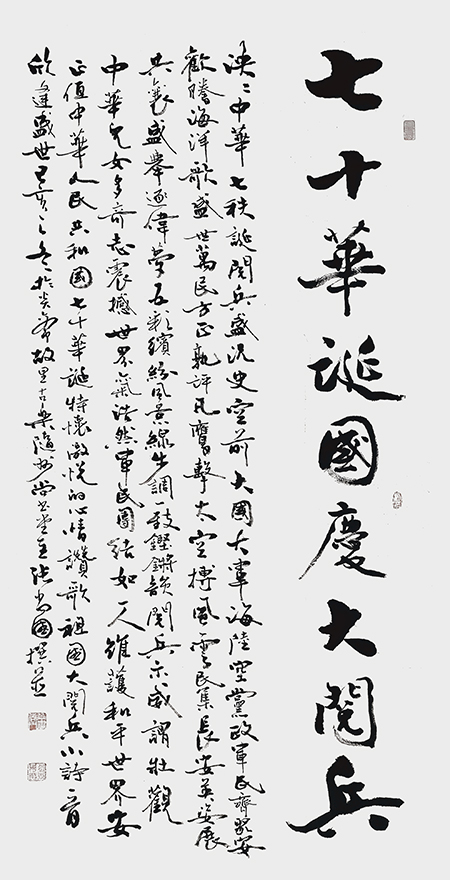 七十華誕國慶大閱兵
泱〻中華七秩誕閱兵盛況史空前大國大軍海陸空黨政軍民齊安
歡騰海洋歌盛世萬民方正孰評凡鷹擊太空搏風雲民集長安英姿展
共襄盛舉逐偉夢五彩繽紛風景線步調鼓鏗鏘韻閱兵示威謂壯觀
中華兒女多奇志震撼世界氣浩然軍民團結如一人維護和平世界安
正值中華人民共和國七十華誕特懷激悅的心情讚歌祖國大閱兵小詩一首
欣逢盛世己亥之冬於炎帝故里古樂隨州尚堂主張尚國撰並